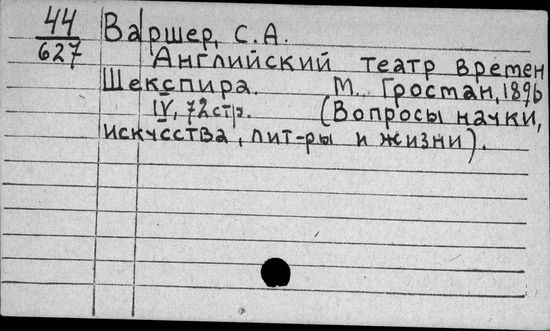 44
627
Варшер, С.А.
Английский театр времен
Шекспира. М. Гростан, 1896
IV, 72 стр. (Вопросы науки,
искусства, лит-ры и жизни).